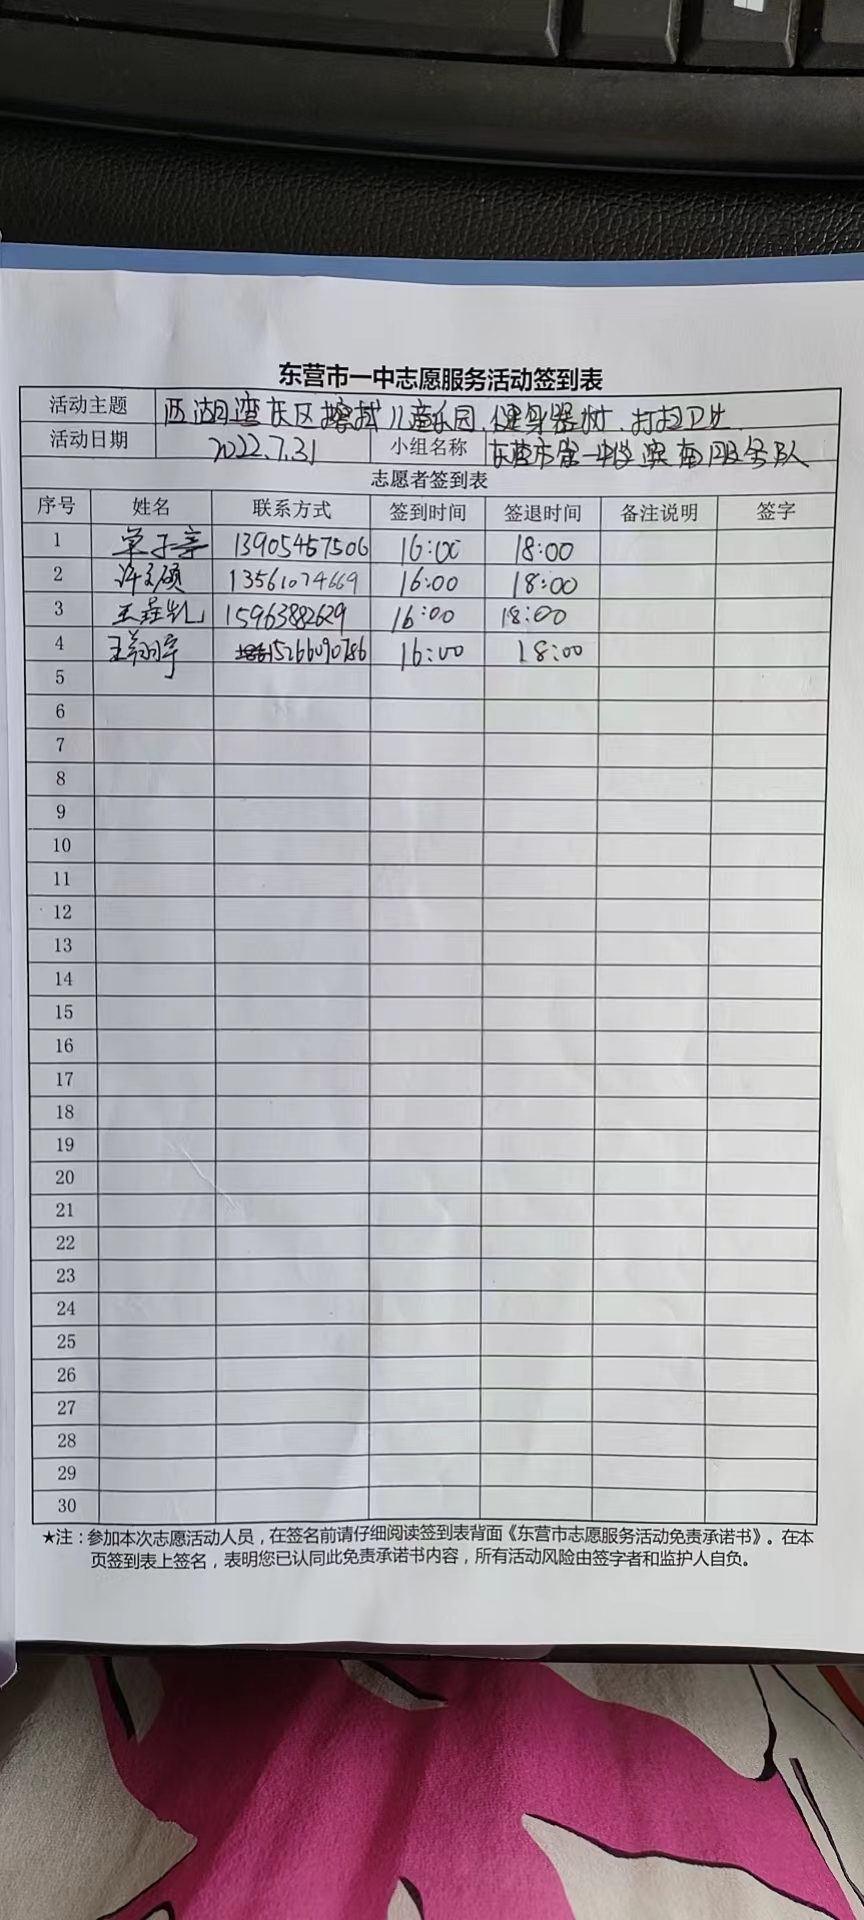 东营市一中志愿服务活动签到表
活动主题 西湖湾庆区擦拭儿童乐园、健身器材、打扫卫生
活动日期 2022.7.31 小组名称 东营市第一中学 服务队
志愿者签到表
序号 姓名 联系方式 签到时间 签退时间 备注说明 签字
1 单子亭 13905457506 16:00 18:00
2 许 硕 13561074669 16:00 18:00
3 王垚 15963882629 16:00 18:00
4 王翔宇 15266090786 16:00 18:00
5
6
7
8
9
10
11
12
13
14
15
16
17
18
19
20
21
22
23
24
25
26
27
28
29
30
★注：参加本次志愿活动人员，在签名前请仔细阅读签到表背面《东营市志愿服务活动免责承诺书》。在本
页签到表上签名，表明您已认同此免责承诺书内容，所有活动风险由签字者和监护人自负。